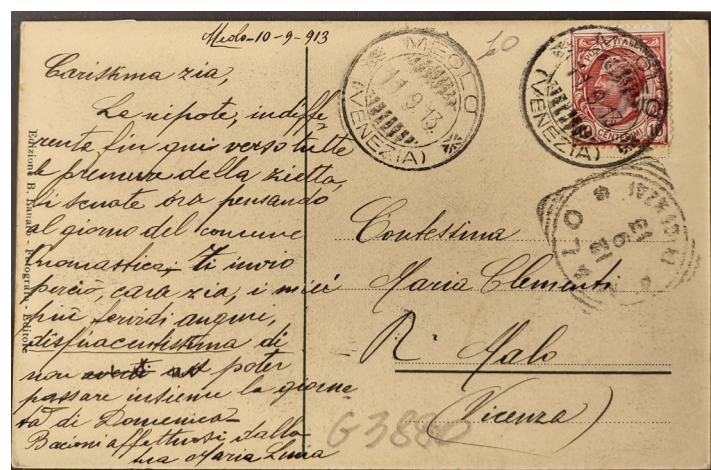 Meolo-10-9-913
Carissima zia,
La nipote, indiffe-
rente fin qui verso tutte
le premure della zietta,
si scuote ora pensando
al giorno del comune
onomastico. Ti invio
perciò, cara zia, i miei
più fervidi auguri,
dispiacentissima di
non poter
passare insieme la giorna-
ta di Domenica-
Bacioni affettuosi dalla
tua Maria Luisa
Edizione B. Fotografo Editore
MEOLO
11.9.13
(VENEZIA)
10
MEOLO
11.9.13
(VENEZIA)
POSTE ITALIANE
CENTESIMI
12 9 13
Contessina
Maria Clementi
R. Malo
(Vicenza)
G3880